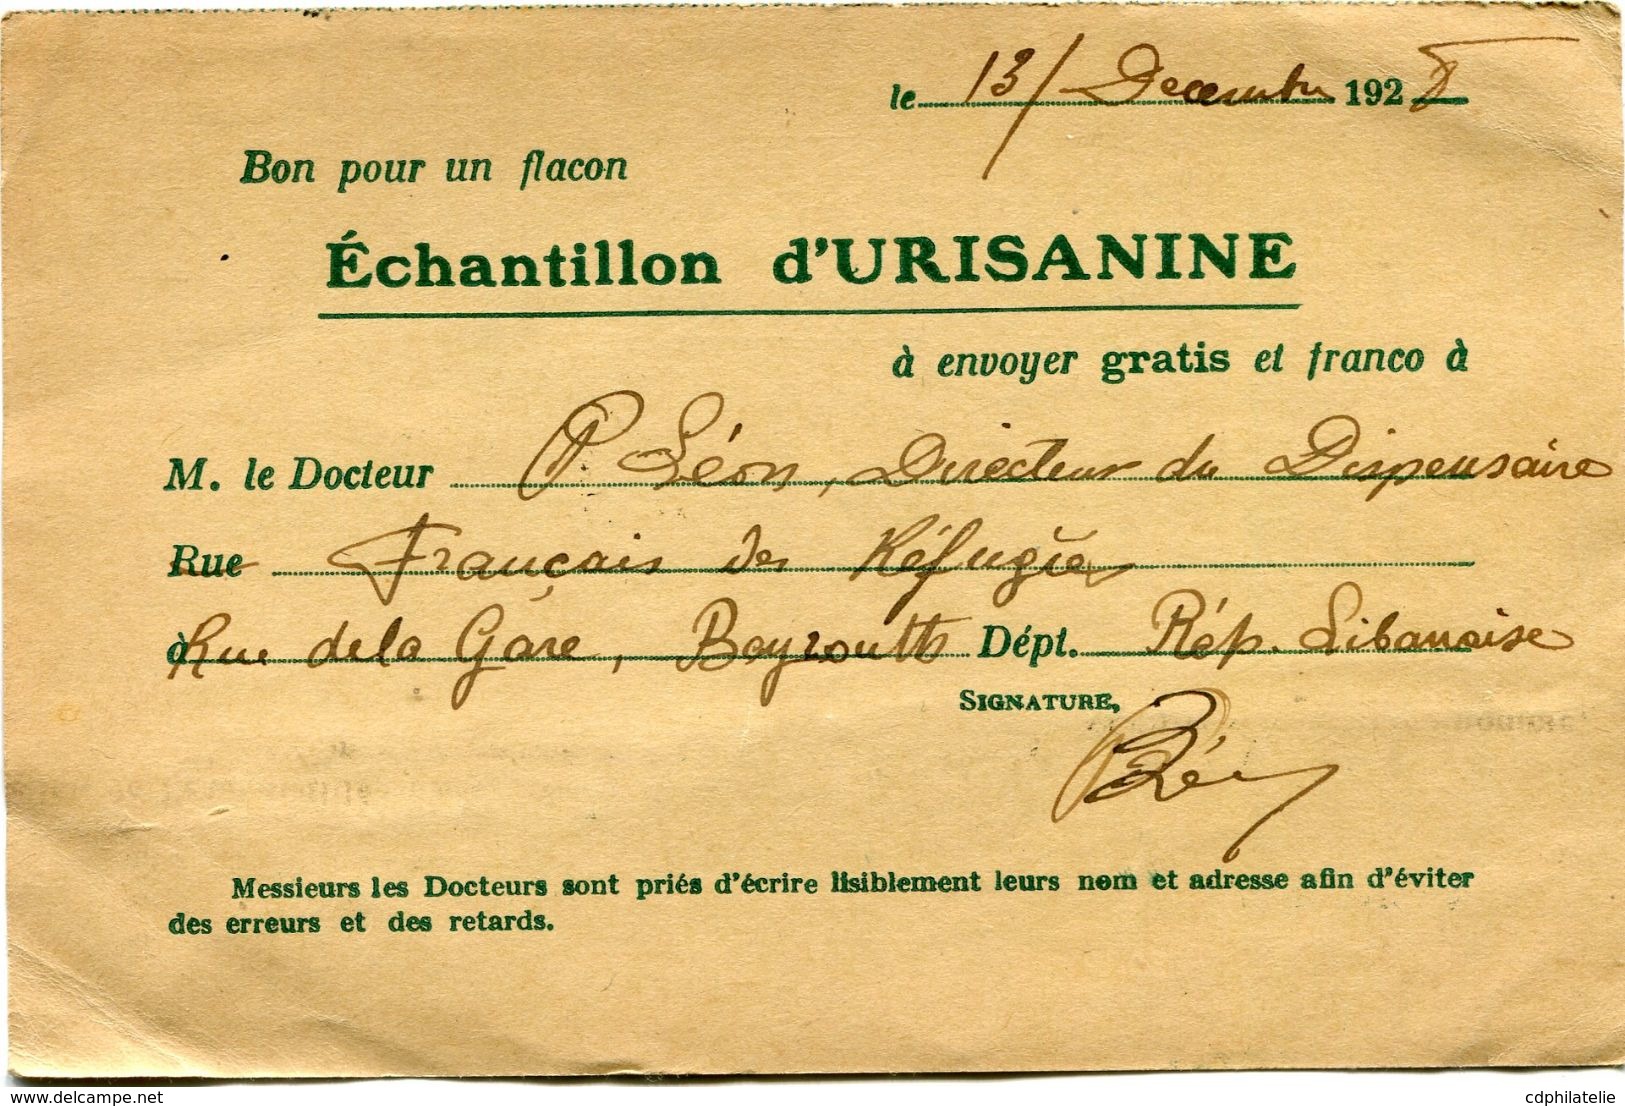 le 13/ Decembre 1928
Bon pour un flacon
Échantillon d'URISANINE
à envoyer gratis et franco à
M. le Docteur P Léon, Directeur du Dispensaire
Rue Français des Réfugiés
à Rue de la Gare, Beyrouth Dépt. Rép. Libanaise
SIGNATURE,
Messieurs les Docteurs sont priés d'écrire lisiblement leurs nom et adresse afin d'éviter
des erreurs et des retards.
www.delcampe.net
cdphilatelie